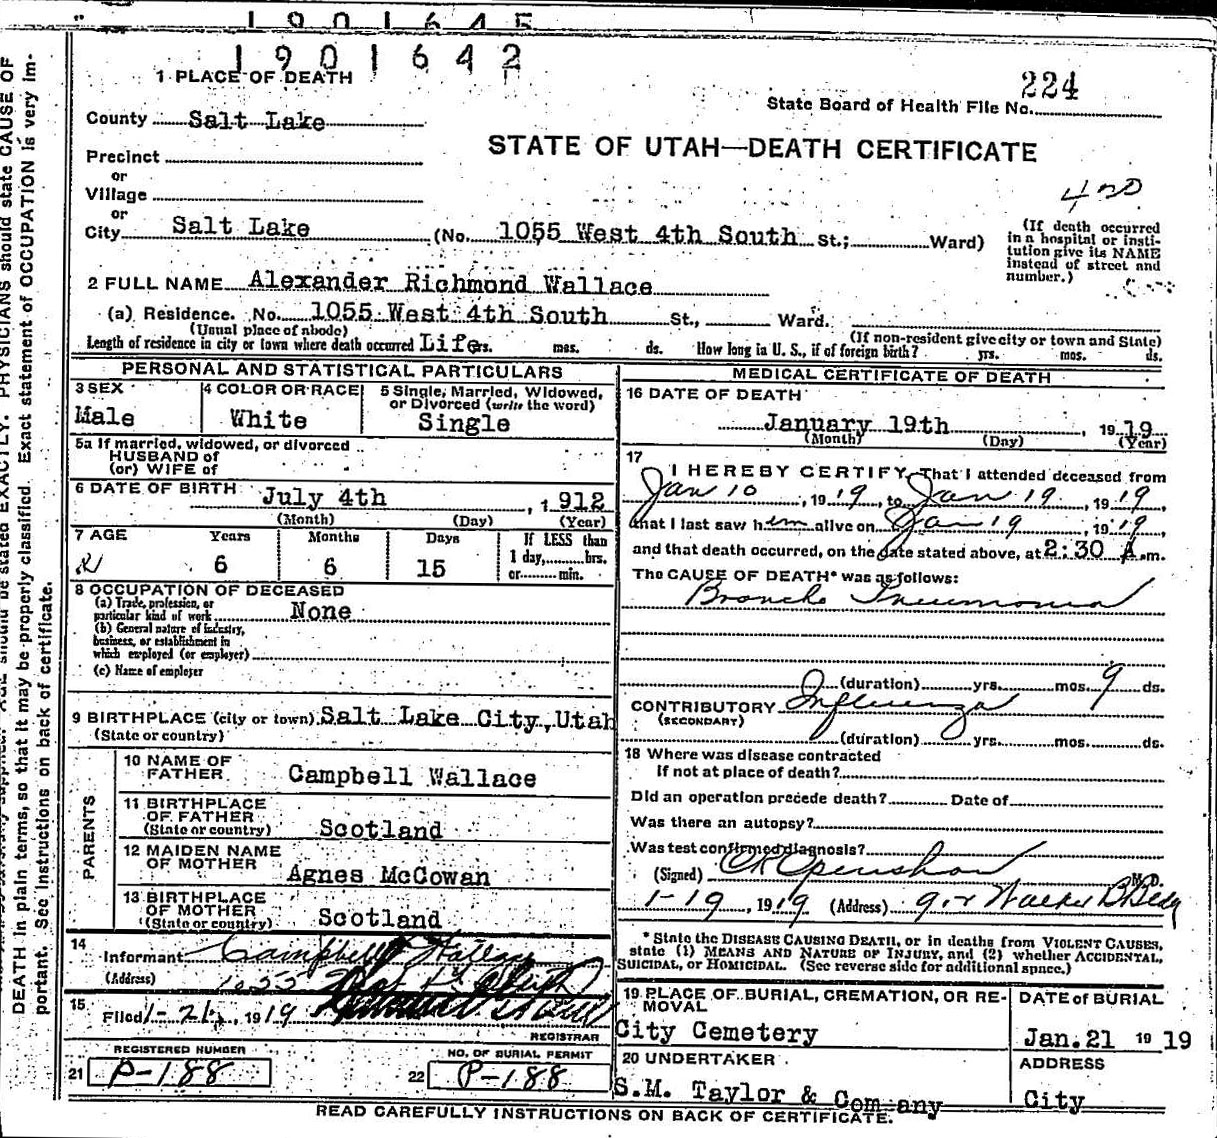 1901645
1901642
1 PLACE OF DEATH
224
State Board of Health File No.
County Salt Lake
STATE OF UTAH—DEATH CERTIFICATE
Precinct
or
Village
or
City Salt Lake (No. 1055 West 4th South St.; Ward)
(If death occurred
in a hospital or insti-
tution give its NAME
instead of street and
number.)
2 FULL NAME Alexander Richmond Wallace
(a) Residence. No. 1055 West 4th South St., Ward.
(Usual place of abode) (If non-resident give city or town and State)
Length of residence in city or town where death occurred Life yrs. mos. ds. How long in U. S., if of foreign birth? yrs. mos. ds.
PERSONAL AND STATISTICAL PARTICULARS
3 SEX
Male
4 COLOR OR RACE
White
5 Single, Married, Widowed,
or Divorced (write the word)
Single
5a If married, widowed, or divorced
HUSBAND of
(or) WIFE of
6 DATE OF BIRTH July 4th, 1912
(Month) (Day) (Year)
7 AGE Years Months Days If LESS than
1 day, hrs.
or min.
6 6 15
8 OCCUPATION OF DECEASED
(a) Trade, profession, or
particular kind of work None
(b) General nature of industry,
business, or establishment in
which employed (or employer)
(c) Name of employer
9 BIRTHPLACE (city or town) Salt Lake City, Utah
(State or country)
PARENTS
10 NAME OF
FATHER Campbell Wallace
11 BIRTHPLACE
OF FATHER
(State or country) Scotland
12 MAIDEN NAME
OF MOTHER Agnes McCowan
13 BIRTHPLACE
OF MOTHER
(State or country) Scotland
14
Informant Campbell Wallace
(Address) 1055
15
Filed 1-21, 1919
REGISTRAR
REGISTERED NUMBER
21 P-188
NO. OF BURIAL PERMIT
22 P-188
MEDICAL CERTIFICATE OF DEATH
16 DATE OF DEATH
January 19th, 1919
(Month) (Day) (Year)
17
I HEREBY CERTIFY, That I attended deceased from
Jan 10, 1919, to Jan 19, 1919,
that I last saw him alive on Jan 19, 1919,
and that death occurred, on the date stated above, at 2:30 A.m.
The CAUSE OF DEATH* was as follows:
Broncho Pneumonia
(duration) yrs. mos. 9 ds.
CONTRIBUTORY Influenza
(SECONDARY)
(duration) yrs. mos. ds.
18 Where was disease contracted
if not at place of death?
Did an operation precede death? Date of
Was there an autopsy?
Was test confirmed diagnosis?
(Signed) Openshaw M.D.
1-19, 1919 (Address) Walker B Bldg
* State the DISEASE CAUSING DEATH, or in deaths from VIOLENT CAUSES,
state (1) MEANS AND NATURE OF INJURY, and (2) whether ACCIDENTAL,
SUICIDAL, or HOMICIDAL. (See reverse side for additional space.)
19 PLACE OF BURIAL, CREMATION, OR RE-
MOVAL
City Cemetery
DATE of BURIAL
Jan. 21 1919
20 UNDERTAKER
S.M. Taylor & Company
ADDRESS
City
READ CAREFULLY INSTRUCTIONS ON BACK OF CERTIFICATE.
PHYSICIANS should state CAUSE OF
DEATH in plain terms, so that it may be properly classified. Exact statement of OCCUPATION is very im-
portant. See instructions on back of certificate.